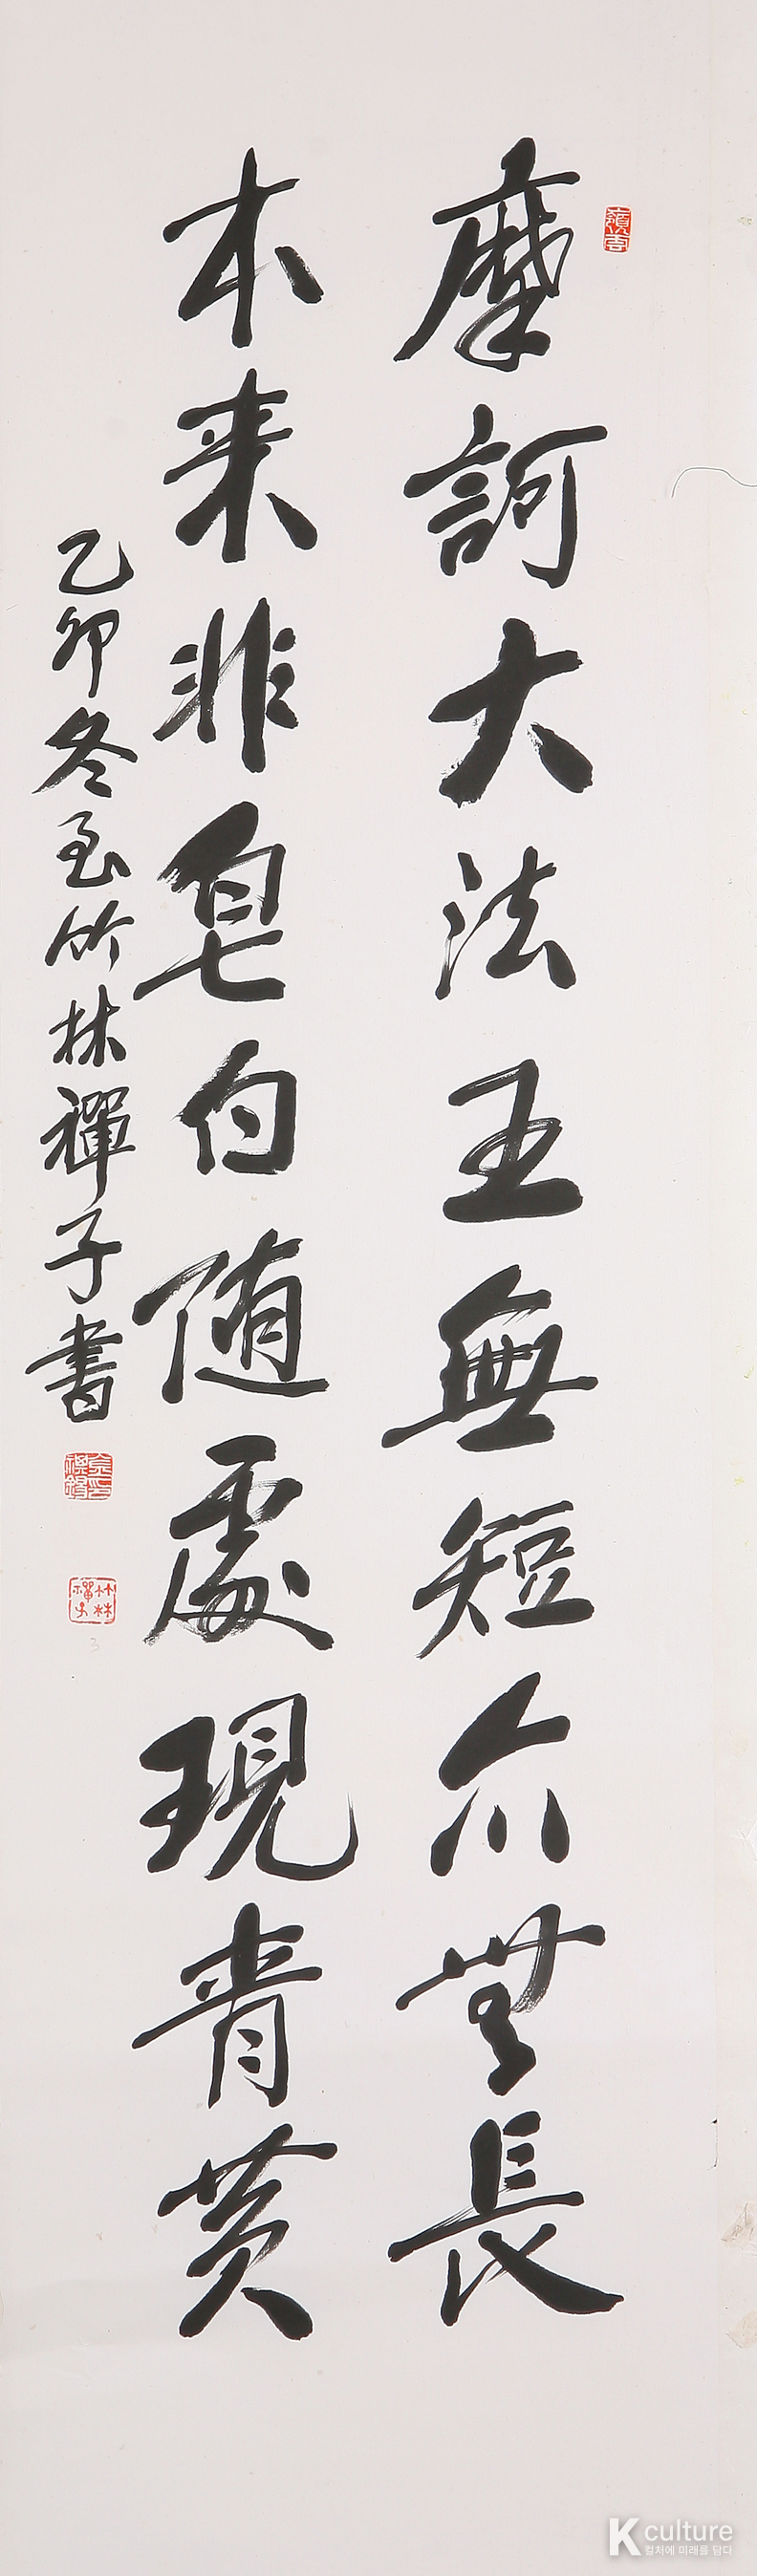 摩訶大法王無短亦無長
本来非皂白随處現青黄
乙卯冬至竹林禪子書
竹林禪子
K culture
컬처에 미래를 담다